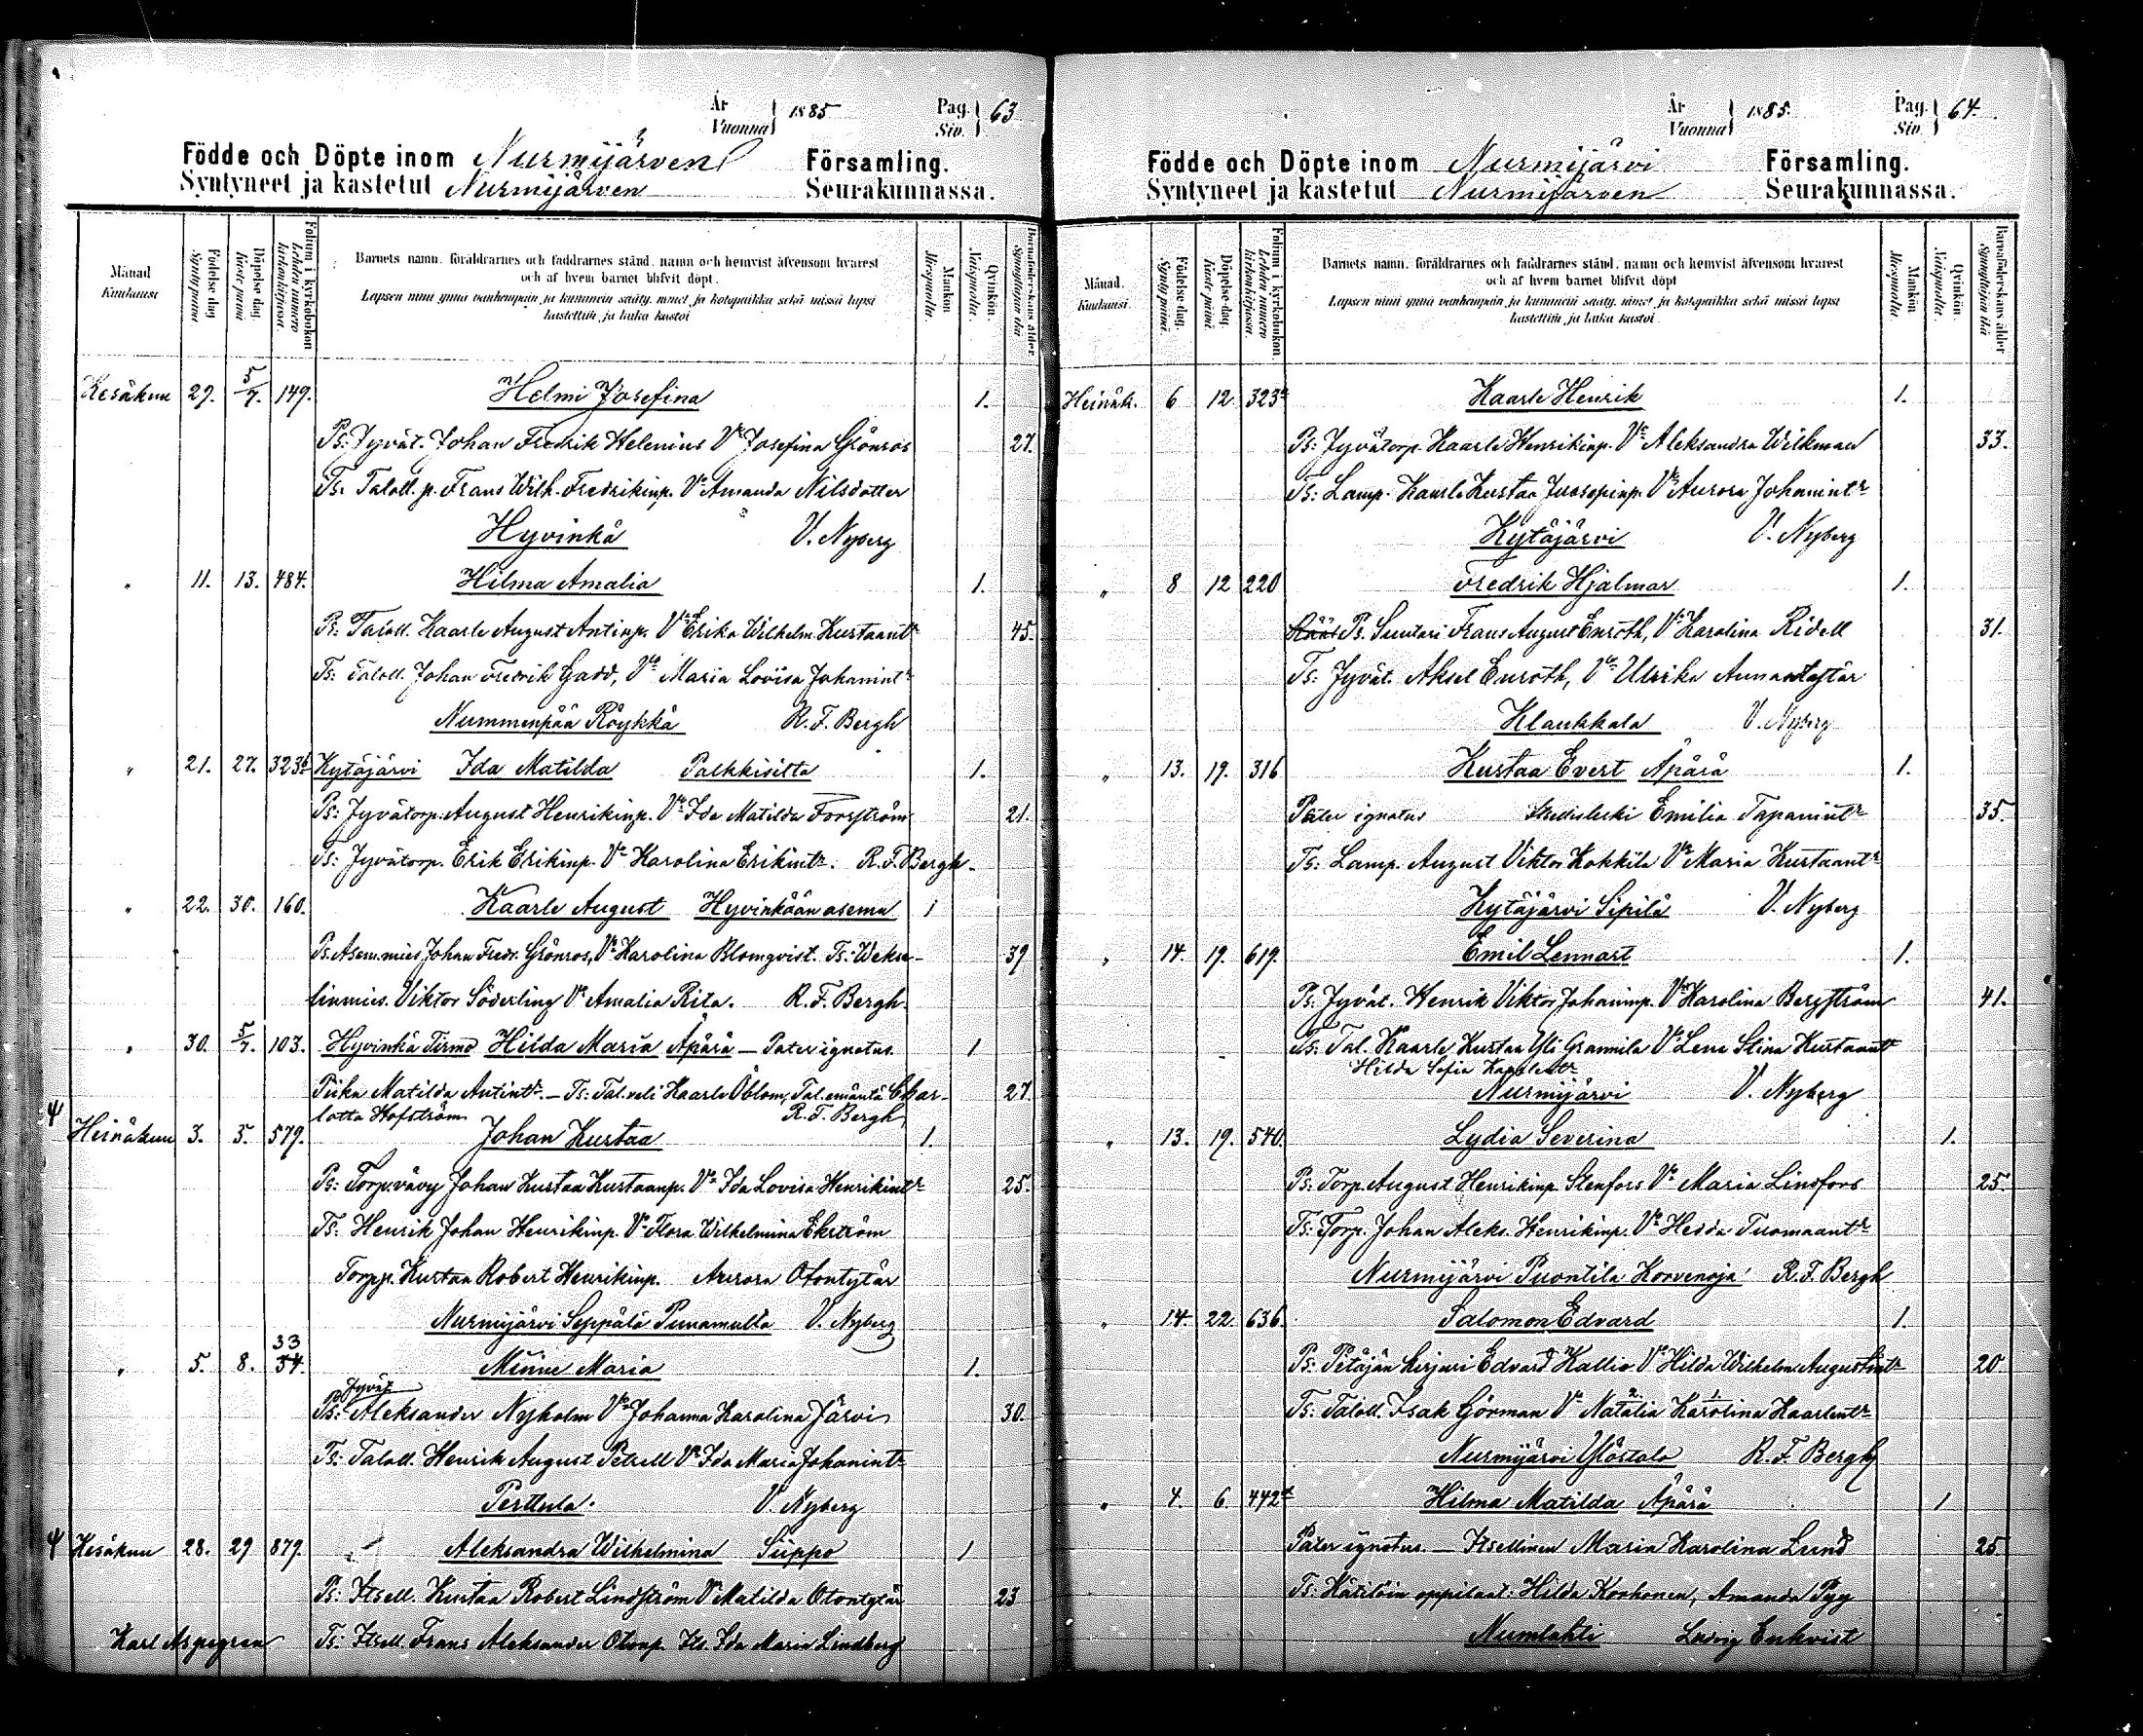 År
Vuonna 1885 Pag. Siv. 63
Födde och Döpte inom Nurmijärven Församling.
Syntyneet ja kastetut Nurmijärven Seurakunnassa.
Månad Kuukausi
Födelse dag Syntypäivä
Döpelse dag. Kastepäivä
Folium i kyrkoboken Lehden numero kirkonkirjassa.
Barnets namn, föräldrarnes och faddrarnes stånd, namn och hemvist äfvensom hvarest
och af hvem barnet blifvit döpt.
Lapsen nimi ynnä vanhempain ja kummein sääty, nimet ja kotopaikka sekä missä lapsi
kastettiin, ja kuka kastoi
Mankön Miespuolia.
Qvinkön. Naispuolia.
Barnaföderskans ålder. Synnyttäjän ikä
Kesäkuu 29. 5/7. 149. Helmi Josefina 1.
Ps: Jyvät. Johan Fredrik Helenius Vo Josefina Grönros 27.
Ts. Taloll. p. Frans Wilh. Fredrikinp. Vo Amanda Nilsdotter
Hyvinkä V. Nyberg
" 11. 13. 484. Hilma Amalia 1.
Ps: Taloll. Kaarle August Antinp. Vo Erika Wilhelm. Kustaantr 45.
Ts: Taloll. Johan Fredrik Gadd, Vo Maria Lovisa Johanintr
Nummenpää Röykkä R. F. Bergh
" 21. 27. 323b Kytäjärvi Ida Matilda Palkkisilta 1.
Ps: Jyvätorp. August Henrikinp. Vo Ida Matilda Forsström 21.
Ts: Jyvätorp. Erik Erikinp. Vo Karolina Erikintr. R. F. Bergh.
" 22. 30. 160. Kaarle August Hyvinkään asema 1
Ps. Asem.mies Johan Fredr. Grönros, Vo Karolina Blomqvist. Ts: Wekse- 39
linmies. Viktor Söderling Vo Amalia Rita. R. F. Bergh.
" 30. 5/7. 103. Hyvinkä Tirmo Hilda Maria Äpärä — Pater ignatus. 1
Piika Matilda Antintr. — Ts: Tal. veli Kaarle Öblom, Tal. emäntä Char- 27
lotta Hofström R. F. Bergh
Heinäkuu 3. 5. 579. Johan Kustaa 1.
Ps: Torp.vävy Johan Kustaa Kustaanp. Vo Ida Lovisa Henrikintr 25.
Ts: Henrik Johan Henrikinp. Vo Flora Wilhelmina Ekström
Torpp. Kustaa Robert Henrikinp. Aurora Otontytär
Nurmijärvi Seppälä Punamulta V. Nyberg
33
" 5. 8. 54. Minne Maria 1.
Jyvät
Ps: Aleksander Nyholm Vo Johanna Karolina Järvi 30.
Ts: Taloll. Henrik August Petrell Vo Ida Maria Johanintr
Perttula. V. Nyberg
Kesäkuu 28. 29 879. Aleksandra Wilhelmina Siippo 1
Ps: Itsell. Kustaa Robert Lindström Vo Matilda Otontytär 23
Karl Aspegren Ts: Itsell. Frans Aleksander Otonp. Its. Ida Maria Lindberg
År
Vuonna 1885. Pag. Siv. 64.
Födde och Döpte inom Nurmijärvi Församling.
Syntyneet ja kastetut Nurmijärven Seurakunnassa.
Månad. Kuukausi.
Födelse dag. Syntypäivä.
Döpelse dag. Kaste päivä
Folium i kyrkoboken. Lehden numero kirkonkirjassa.
Barnets namn, föräldrarnes och faddrarnes stånd, namn och hemvist äfvensom hvarest
och af hvem barnet blifvit döpt
Lapsen nimi ynnä vanhempain ja kummein sääty, nimet ja kotopaikka sekä missä lapsi
kastettiin, ja kuka kastoi.
Mankön Miespuolia.
Qvinkön. Naispuolia.
Barnaföderskans ålder Synnyttäjän ikä
Heinäk. 6 12 323a Kaarle Henrik 1.
Ps: Jyvätorp. Kaarle Henrikinp. Vo Aleksandra Wilkman 33.
Ts: Lamp. Kaarle Kustaa Juosepinp. Vo Aurora Johanintr
Kytäjärvi V. Nyberg
" 8 12 220 Fredrik Hjalmar 1.
Ps. Suutari Frans August Enroth, Vo Karolina Ridell 31.
Ts: Jyvät. Aksel Enroth, Vo Ulrika Annantytär
Klaukkala V. Nyberg
" 13. 19. 316 Kustaa Evert Äpärä 1.
Pater ignatus Emilia Tapanintr 35.
Ts: Lamp. August Viktor Kokkila Vo Maria Kustaantr
Kytäjärvi Sipilä V. Nyberg
" 14. 19. 619. Emil Lennart 1.
Ps: Jyvät. Henrik Viktor Johaninp. Vo Karolina Bergström 41.
Ts: Tal. Kaarle Kustaa Yli Grannila Vo Lena Stina Kustaantr
Hilda Sofia Kaarlentr
Nurmijärvi V. Nyberg
" 13. 19. 540. Lydia Severina 1.
Ps: Torp. August Henrikinp. Stenfors Vo Maria Lindfors 25.
Ts: Torp. Johan Aleks. Henrikinp. Vo Hedda Tuomaantr
Nurmijärvi Puontila Korvenoja R. F. Bergh
" 14. 22. 636. Salomon Edvard 1.
Ps: Pitäjän kirjuri Edvard Kallio Vo Hilda Wilhelm. Augustintr 20
Ts: Taloll. Isak Görman Vo Natalia Karolina Kaarlentr
Nurmijärvi Ylöstalo R. F. Bergh
" 4. 6 442a Hilma Matilda Äpärä 1
Pater ignotus. — Itsellinen Maria Karolina Lund 25.
Ts: Kätilöin oppilaat: Hilda Korhonen, Amanda Pyy
Numlahti Ludvig Enkvist